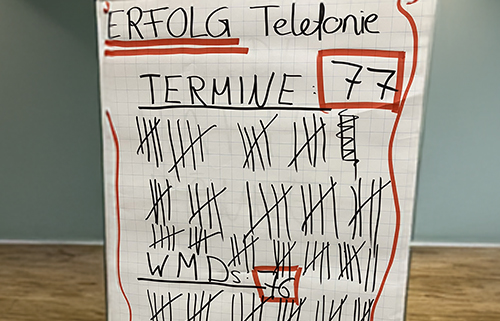 ERFOLG Telefonie
TERMINE: 77
WMDs: 76